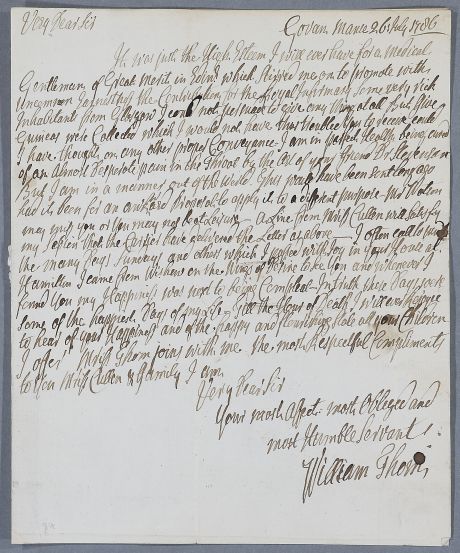 Very Dear Sir
Govan Manse 26 July 1786
It was just the High Esteem I will ever have for a Medical
Gentleman of Great Merit in Edinr which stirred me on to promote with
uncommon Earnestness the Contribution for the Royal Infirmary some very rich
Inhabitant from Glasgow I could not persuade to give any thing at all But five
Guineas were Collected which I would not have thus troubled you to receive could
I have thought on any other proper Conveyance. I am in perfect Health being cured
of an Almost Desperate pain in the Throat by the Aid of your friend Dr Stevenson
But I am in a manner out of the World. This would have been sent long ago
had it been for an awkward proposal to apply it to a different purpose Mr
may miss you or you may not be at Leisure - A Line from Miss Cullen will satisfy
my Desire that the Carrier have delivered the Letter as above - I often call to mind
the many Days Sundays and others which I passed with Joy in your House at
Hamilton I came from Wishaw on the Wings of Desire to see You and whenever I
found You my Happiness was next to being Compleat In truth these Days were
some of the happiest Days of my Life - Till the Hour of Death I will ever rejoice
to hear of your Happiness and of the happy and flourishing State of all your Children
I offer Mrss Thom joins with me the most Respectful Compliments
to You Miss Cullen & Family I am
Very Dear Sir
Your most Affect: most Obliged and
most Humble Servant
William Thom